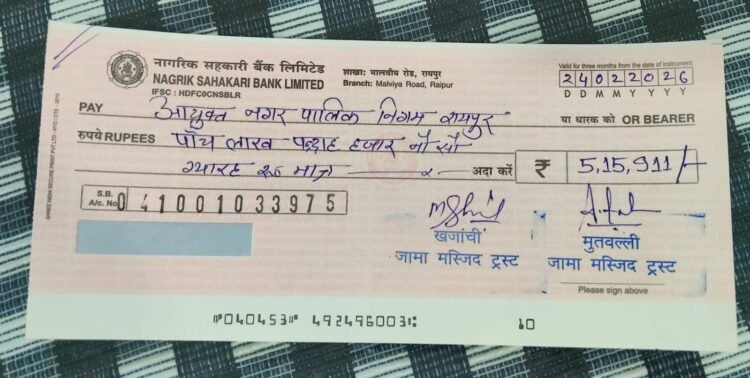 नागरिक सहकारी बैंक लिमिटेड
NAGRIK SAHAKARI BANK LIMITED
IFSC : HDFC0CNSBLR
शाखा: मालवीय रोड, रायपुर
Branch: Malviya Road, Raipur
Valid for three months from the date of instrument
24022026
D D M M Y Y Y Y
PAY आयुक्त नगर पालिक निगम रायपुर या धारक को OR BEARER
रुपये RUPEES पाँच लाख पन्द्रह हजार नौ सौ
ग्यारह रू० मात्र अदा करें ₹ 5,15,911/-
S.B.
A/c. No. 041001033975
खजांची
जामा मस्जिद ट्रस्ट
मुतवल्ली
जामा मस्जिद ट्रस्ट
Please sign above
⑈040453⑈ 492496003⑆ 10